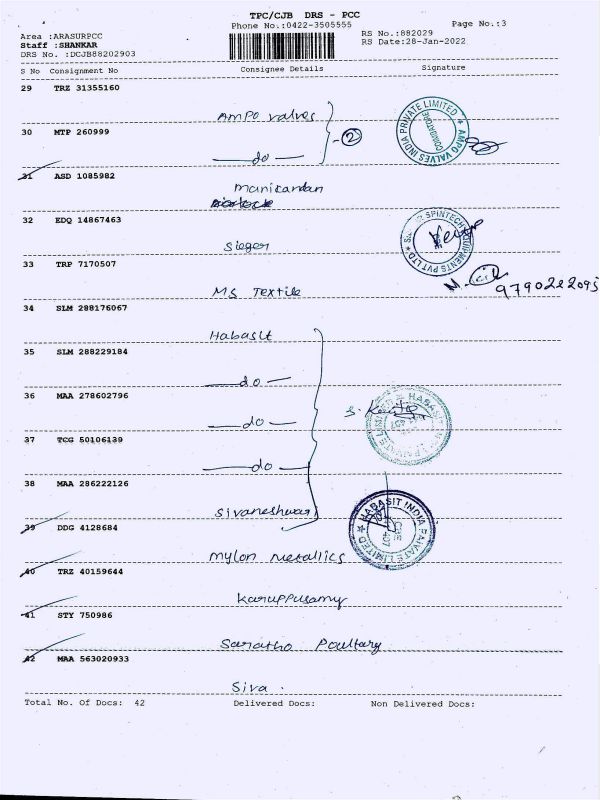 TPC/CJB DRS - PCC
Phone No.:0422-3505555
Page No.:3
Area :ARASURPCC
RS No.:882029
Staff :SHANKAR
RS Date:28-Jan-2022
DRS No. :DCJB88202903
S No Consignment No Consignee Details Signature
29 TRZ 31355160
Ampo valves
30 MTP 260999
do
2
AMPO VALVES INDIA PRIVATE LIMITED
COIMBATORE
31 ASD 1085982
Manikandan
32 EDQ 14867463
Sieger
SPINTECH EQUIPMENTS PVT LTD
33 TRP 7170507
MS Textile
9790222095
34 SLM 288176067
Habasit
35 SLM 288229184
do
36 MAA 278602796
do
37 TCG 50106139
do
38 MAA 286222126
Sivaneshwar
HABASIT INDIA PRIVATE LIMITED
CBE
407
39 DDG 4128684
Mylon Metallics
40 TRZ 40159644
Karuppusamy
41 STY 750986
Saratho Poultary
42 MAA 563020933
Siva .
Total No. Of Docs: 42 Delivered Docs: Non Delivered Docs: